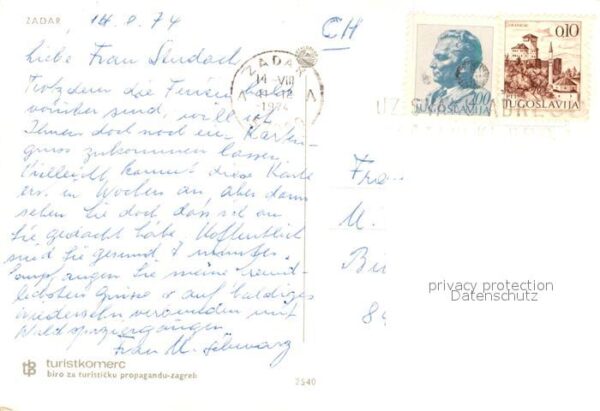 ZADAR
14.8.74
CH
Liebe Frau
ZADAR
14 VIII
11-12
1974
4.00
JUGOSLAVIJA
0.10
JUGOSLAVIJA
Trotzdem die Ferien bald
vorüber sind, will ich
Ihnen doch noch ein Karten-
gruss zukommen lassen.
Vielleicht kommt diese Karte
erst in Wochen an, aber dann
sehen Sie doch, dass ich an
Sie gedacht habe. Hoffentlich
sind Sie gesund &
empfangen Sie meine freund-
lichsten Grüsse & auf baldiges
Wiedersehn verbunden mit
Waldspaziergängen
Frau M. Schwarz
Fra
M.
Bi
84
privacy protection
Datenschutz
turistkomerc
biro za turističku propagandu-zagreb
2540